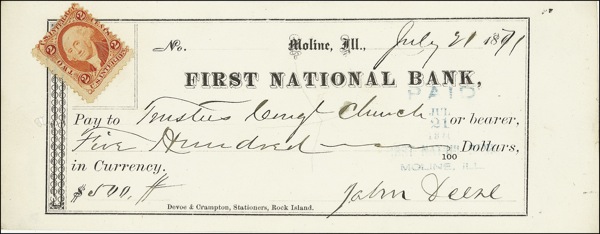 No. Moline, Ill., July 21 1871
FIRST NATIONAL BANK,
PAID
JUL
21
1871
Pay to Trustees Congl Church or bearer,
Five Hundred 100 Dollars,
MOLINE, ILL
in Currency.
$500.
John Deere
Devoe & Crampton, Stationers, Rock Island.
2 2
TWO CENTS